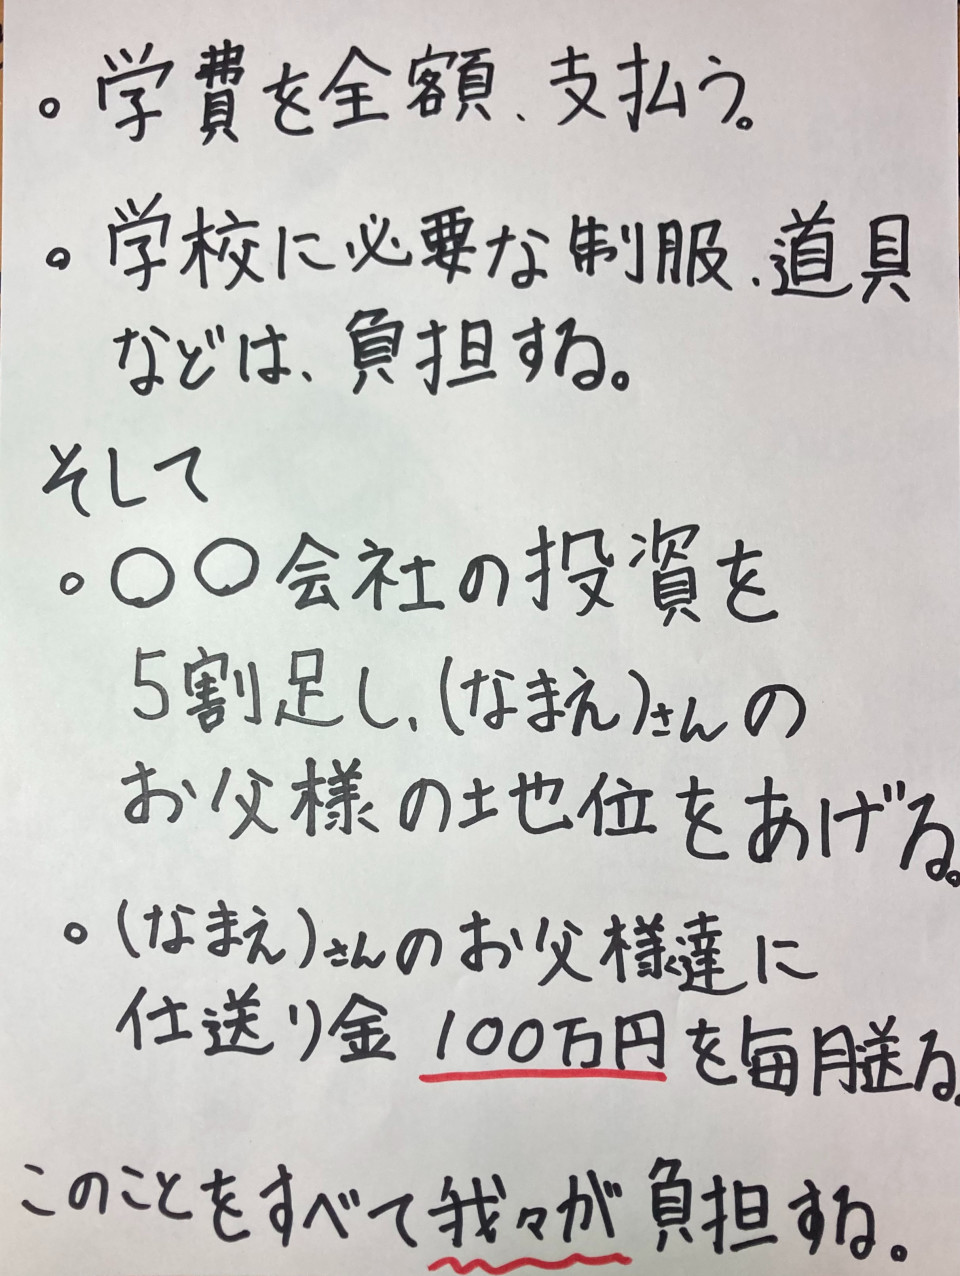 。学費を全額、支払う。
。学校に必要な制服、道具
などは、負担する。
そして
。〇〇会社の投資を
5割足し、(なまえ)さんの
お父様の地位をあげる。
。(なまえ)さんのお父様達に
仕送り金100万円を毎月送る。
このことをすべて我々が負担する。